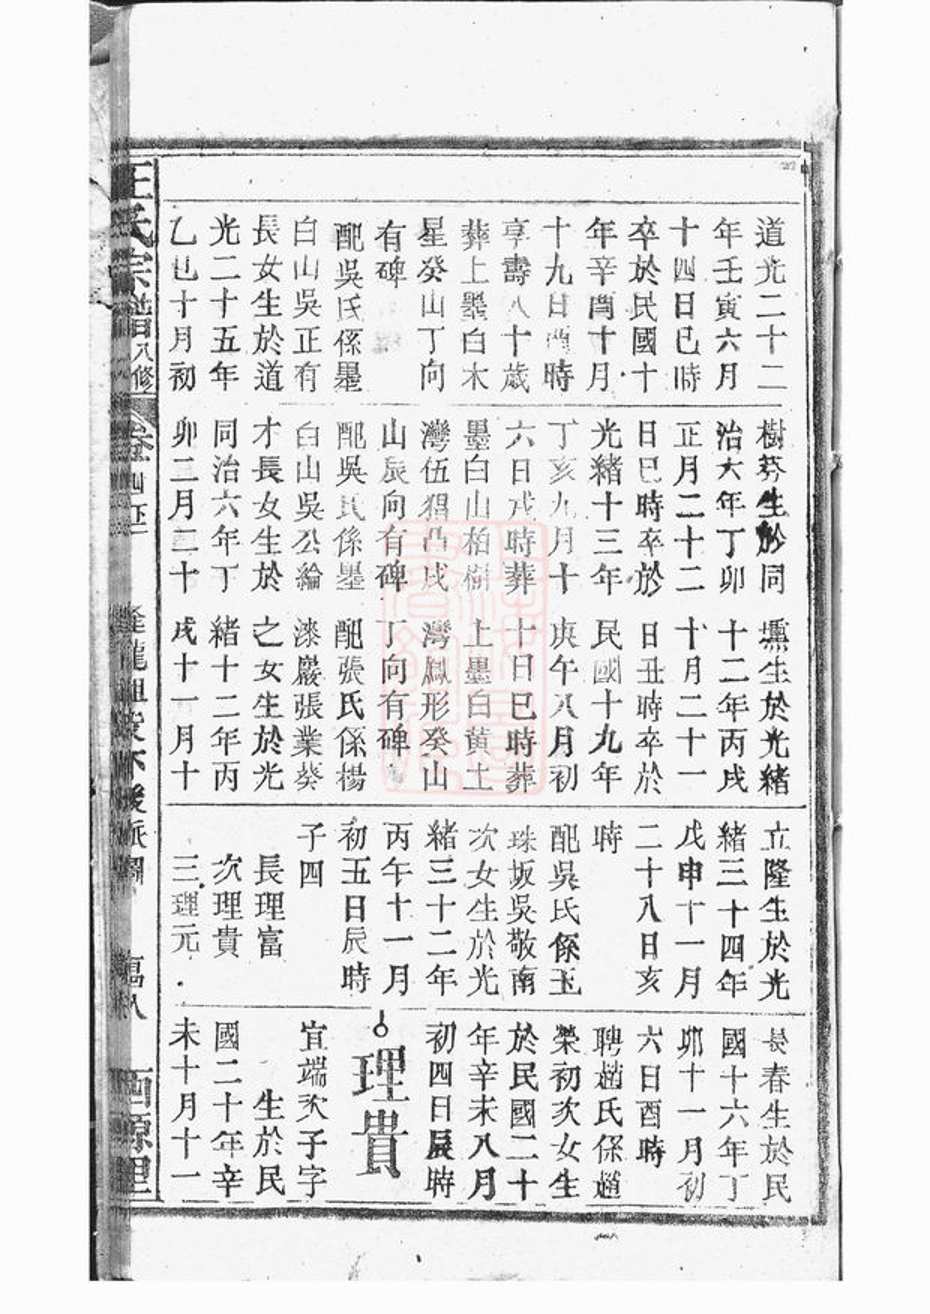 道光二十二
年壬寅六月
十四日巳時
卒於民國十
年辛酉十月
十九日酉時
享壽八十歲
葬上墨白木
星癸山丁向
有碑
配吳氏係墨
白山吳正有
長女生於道
光二十五年
乙巳十月初
樹棻生於同
治六年丁卯
正月二十二
日巳時卒於
光緒十三年
丁亥九月十
六日戌時葬
墨白山柏樹
灣伍猖凸戌
山辰向有碑
配吳氏係墨
白山吳公綸
才長女生於
同治六年丁
卯二月三十
生於光緒
十二年丙戌
十月二十一
日丑時卒於
民國十九年
庚午八月初
十日巳時葬
上墨白黄土
灣鳳形癸山
丁向有碑
配張氏係楊
漆巖張業葵
之女生於光
緒十二年丙
戌十一月十
立隆生於光
緒三十四年
戊申十一月
二十八日亥
時
配吳氏係玉
珠坂吳敬南
次女生於光
緒三十二年
丙午十一月
初五日辰時
子四
長理富
次理貴
三理元
長春生於民
國十六年丁
卯十一月初
六日酉時
聘趙氏係趙
榮初次女生
於民國二十
年辛未八月
初四日辰時
理貴
宜端次子字
生於民
國二十年辛
未十月十一
王氏宗譜 八修 卷四